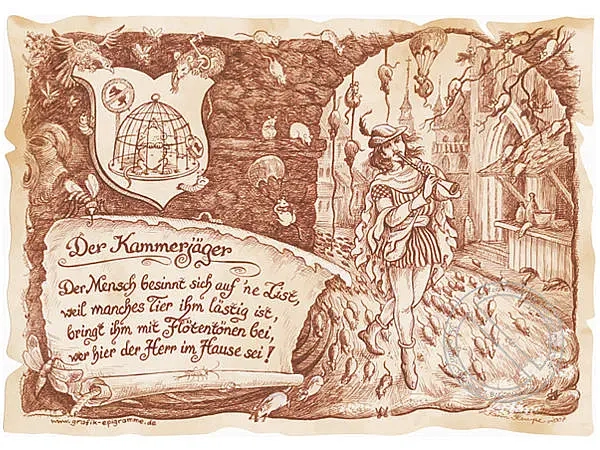 Der Kammerjäger
Der Mensch besinnt sich auf 'ne List,
weil manches Tier ihm lästig ist,
bringt ihm mit Flötentönen bei,
wer hier der Herr im Hause sei!
www.grafik-epigramme.de